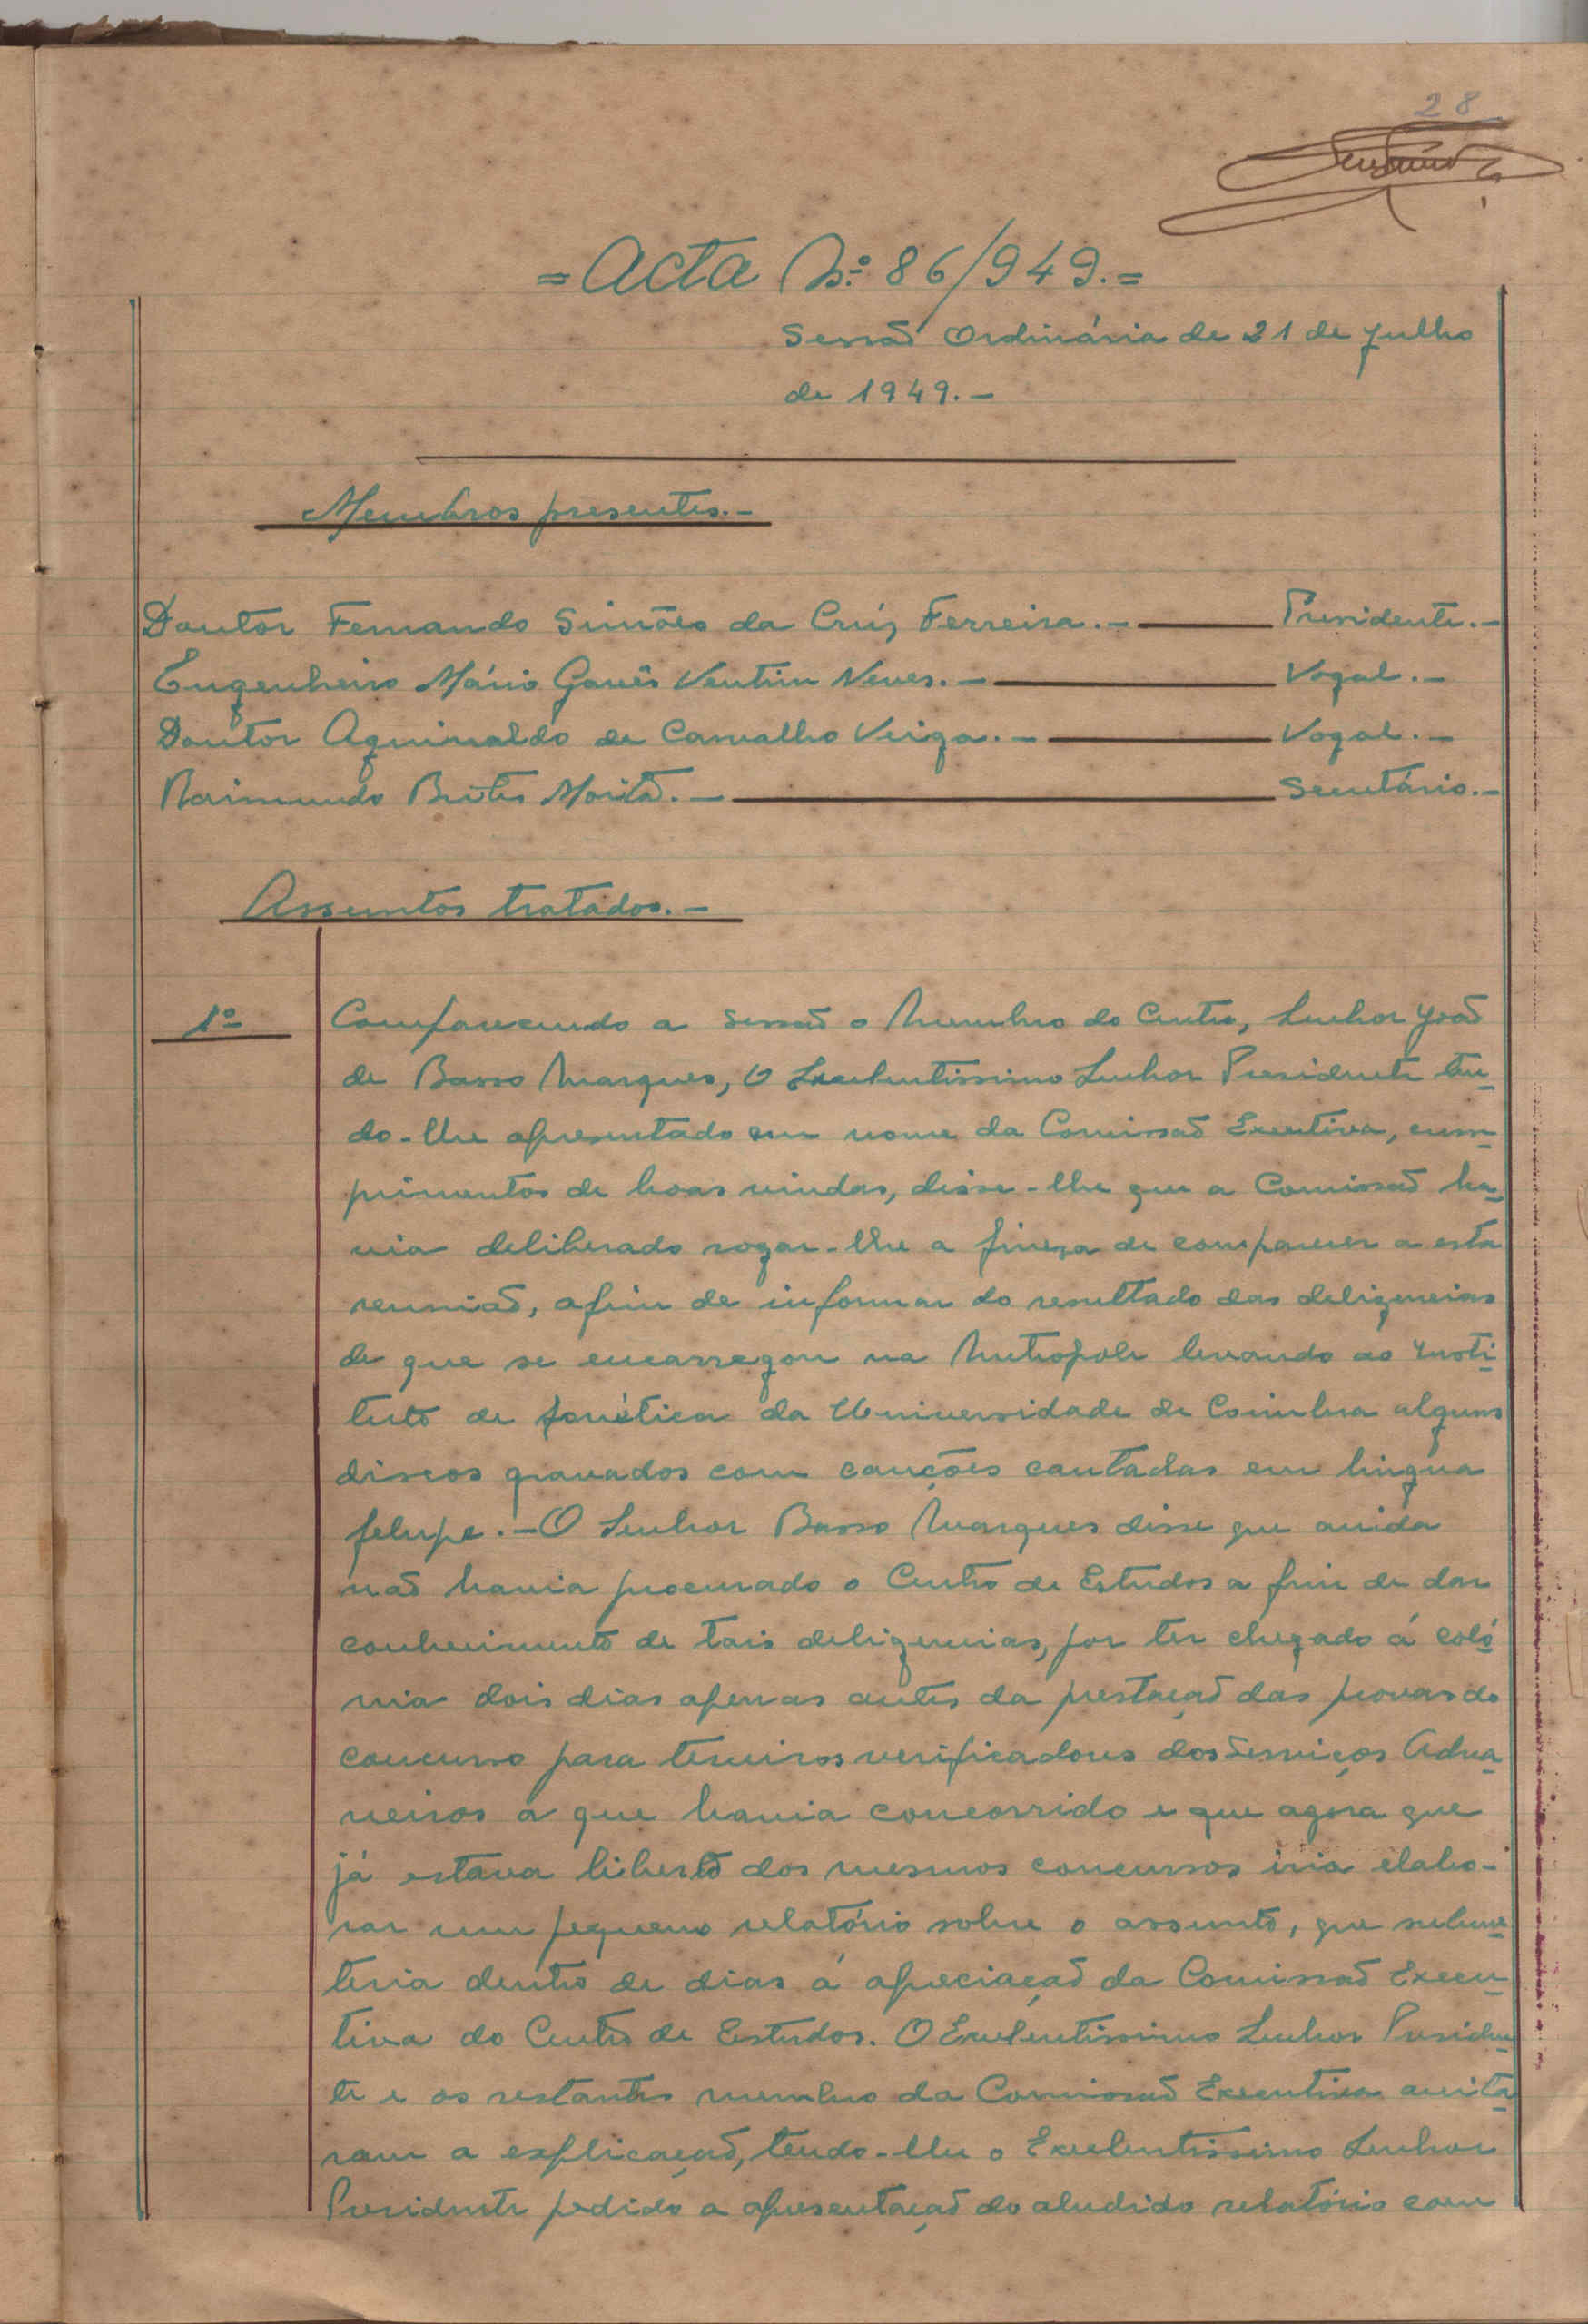 28
= Acta N.º 86/949. =
Sessão Ordinária de 21 de Julho
de 1949. -
Membros presentes. -
Doutor Fernando Simões da Cruz Ferreira. - Presidente. -
Engenheiro Mário Ventim Neves. - Vogal. -
Doutor Aguinaldo de Carvalho Veiga. - Vogal. -
Raimundo Brites Moita. - Secretário. -
Assuntos tratados. -
1º Comparecendo a sessão o Membro do Centro, Senhor João
de Basso Marques, O Excelentissimo Senhor Presidente ten_
do-lhe apresentado em nome da Comissão Executiva, cum_
primentos de boas vindas, disse-lhe que a Comissão ha_
via deliberado rogar-lhe a fineza de comparecer a esta
reunião, afim de informar do resultado das deligencias
de que se encarregou na Metropole levando ao Insti_
tuto de fonética da Universidade de Coimbra alguns
discos gravados com canções cantadas em lingua
felupe. - O Senhor Basso Marques disse que ainda
não havia procurado o Centro de Estudos a fim de dar
conhecimento de tais deligencias, por ter chegado á coló
nia dois dias apenas antes da prestação das provas do
concurso para terceiros verificadores dos Serviços Adua_
neiros a que havia concorrido e que agora que
já estava liberto dos mesmos concursos iria elabo-
rar um pequeno relatório sobre o assunto, que subme_
teria dentro de dias á apreciação da Comissão Execu_
tiva do Centro de Estudos. O Excelentissimo Senhor Presiden_
te e os restantes membro da Comissão Executiva aceita_
ram a explicação, tendo-lhe o Excelentissimo Senhor
Presidente pedido a apresentação do aludido relatório com